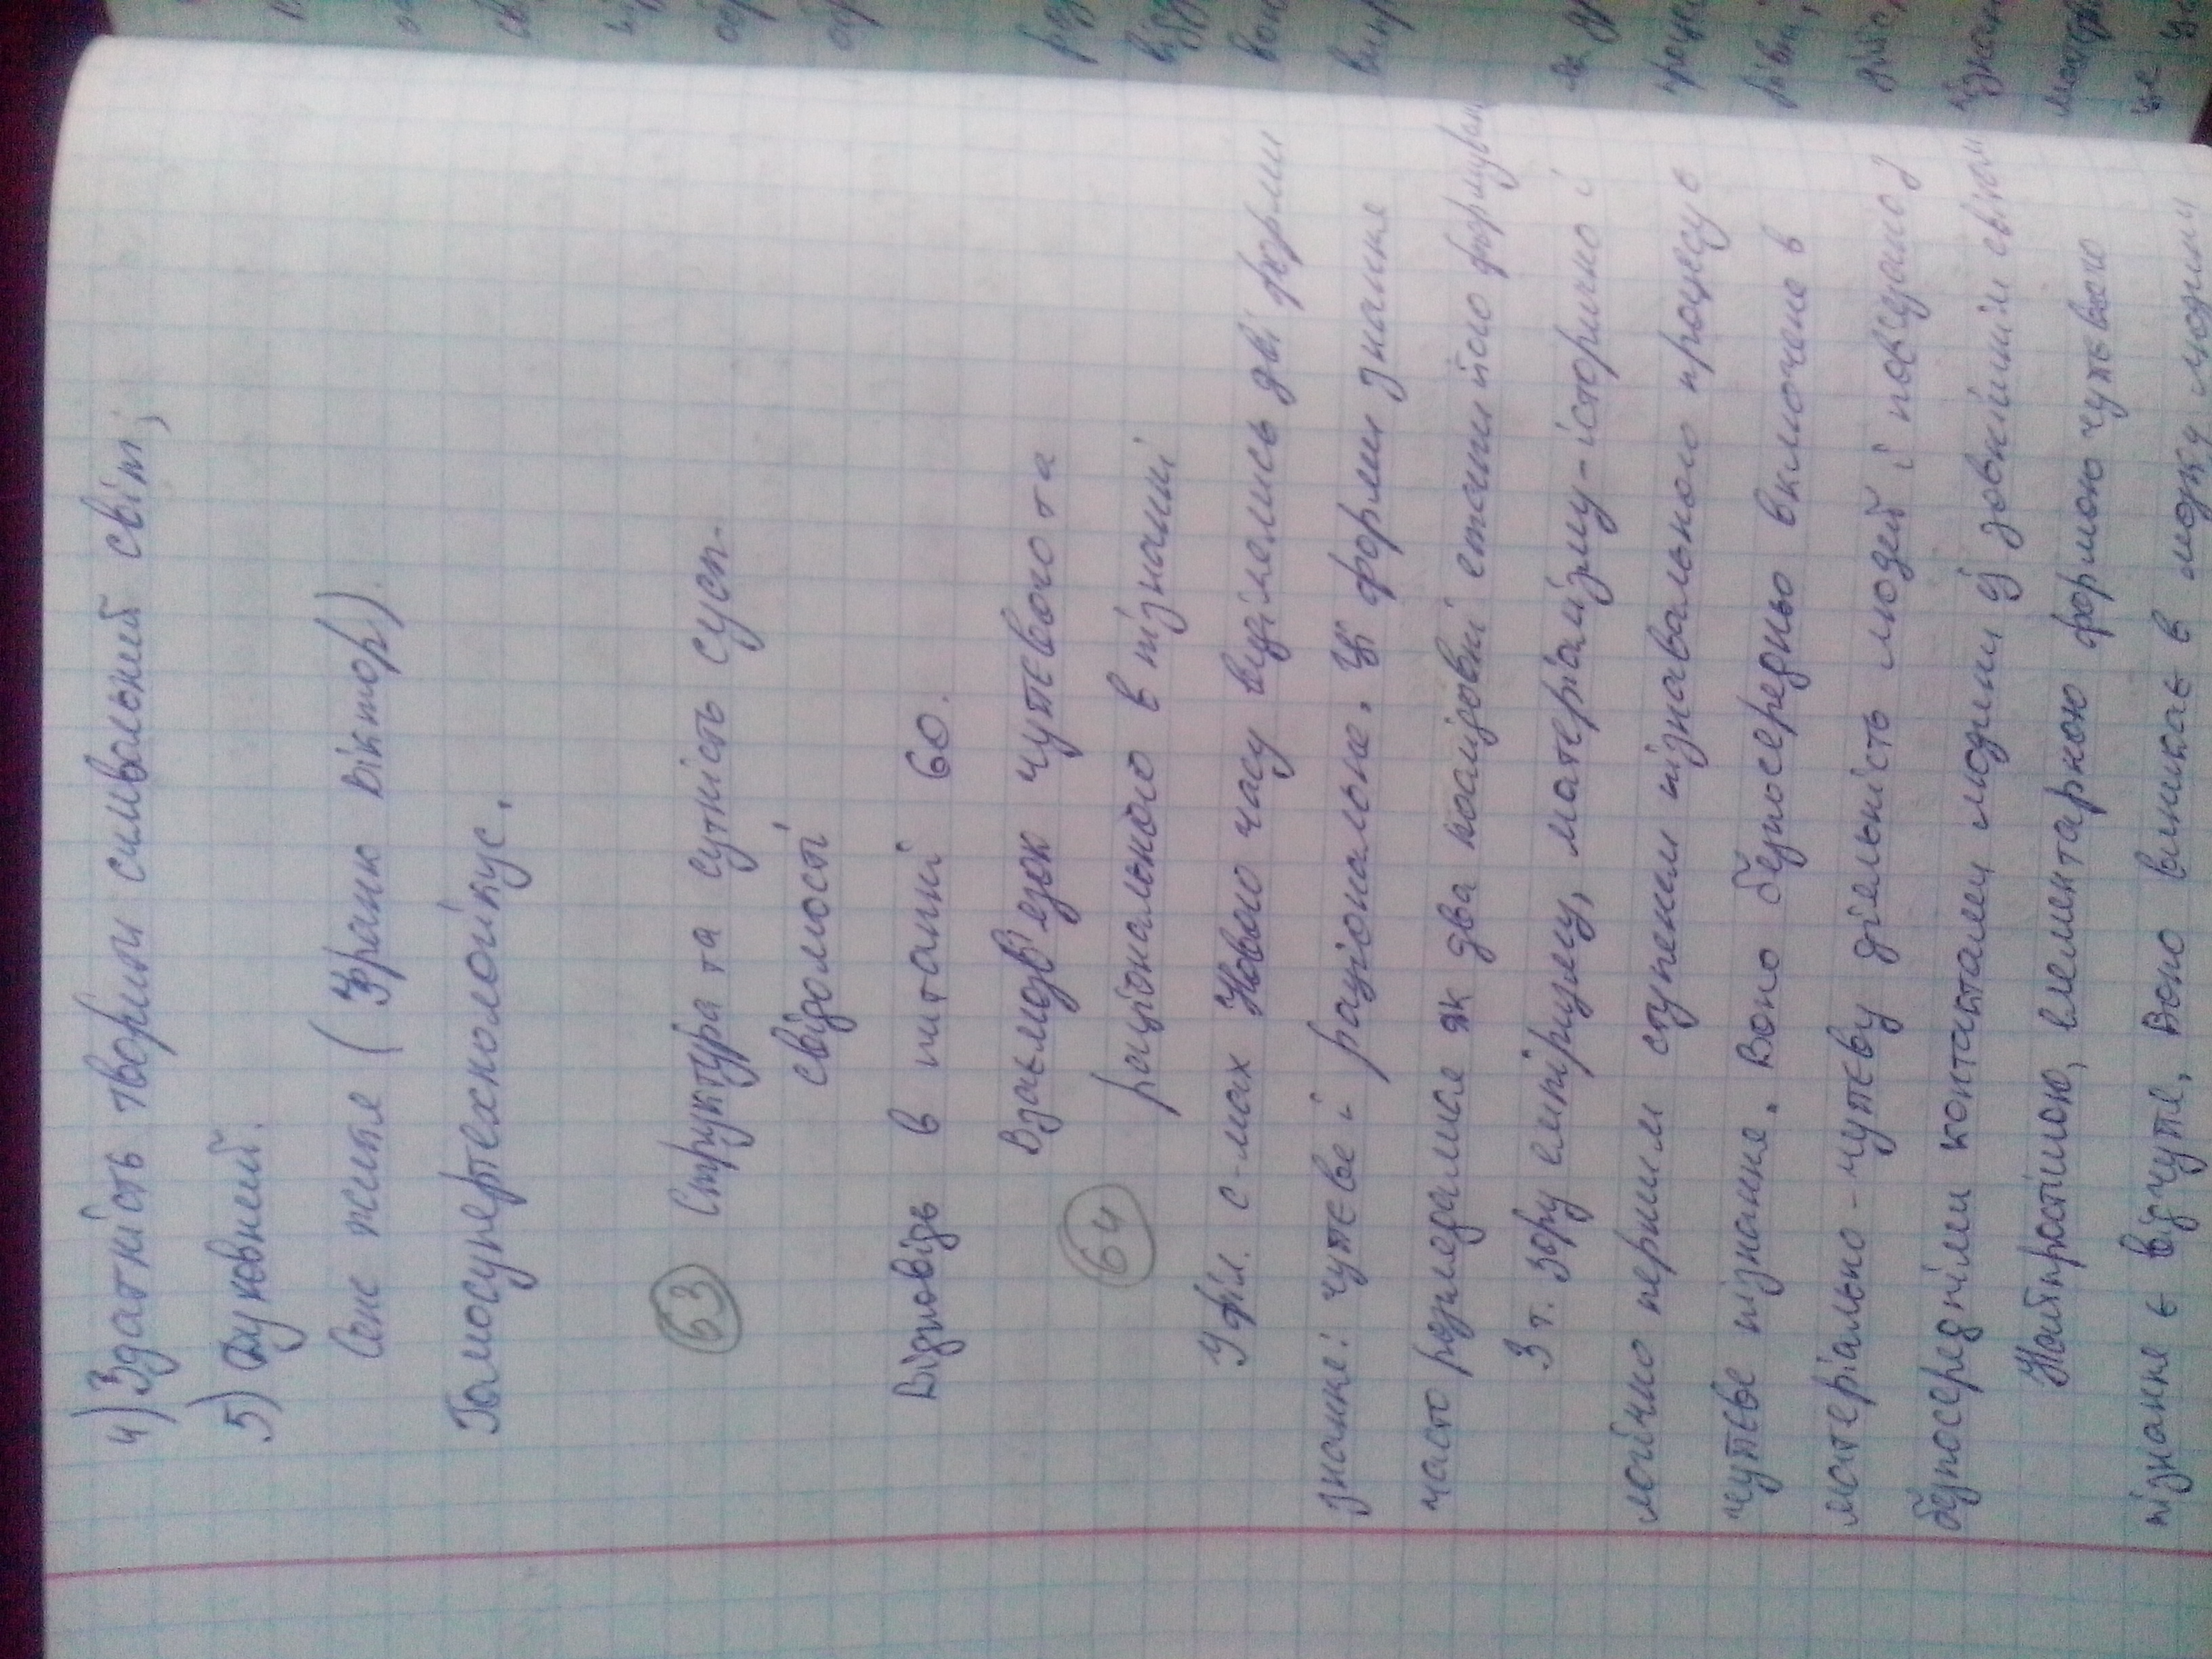 4) Здатність творити символьний світ;
5) Духовний.
Сенс життя (Франк Віктор).
Гомосупертехнологікус.
63 Структура та сутність сусп.
свідомості
Відповідь в питанні 60.
Взаємозв'язок чуттєвого та
64 раціонального в пізнанні
У філ. с-мах Нового часу виділялись дві форми
знання: чуттєве і раціональне. Ці форми знання
часто розглядалися як два послідовні етапи його формуван
З т. зору емпіризму, матеріалізму - історично і
логічно першим ступенем пізнавального процесу є
чуттєве пізнання. Воно безпосередньо включене в
матеріально-чуттєву діяльність людей і пов'язано з
безпосередніми контактами людини із зовнішнім світом
Найпростішою, елементарною формою чуттєвого
пізнання є відчуття. Воно виникає в мозку людини